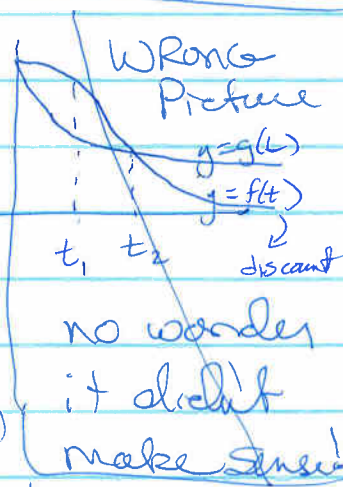 WRONG
Picture
y=g(t)
y=f(t)
t₁
t₂
discount
no wonder
it didn't
make sense!
)